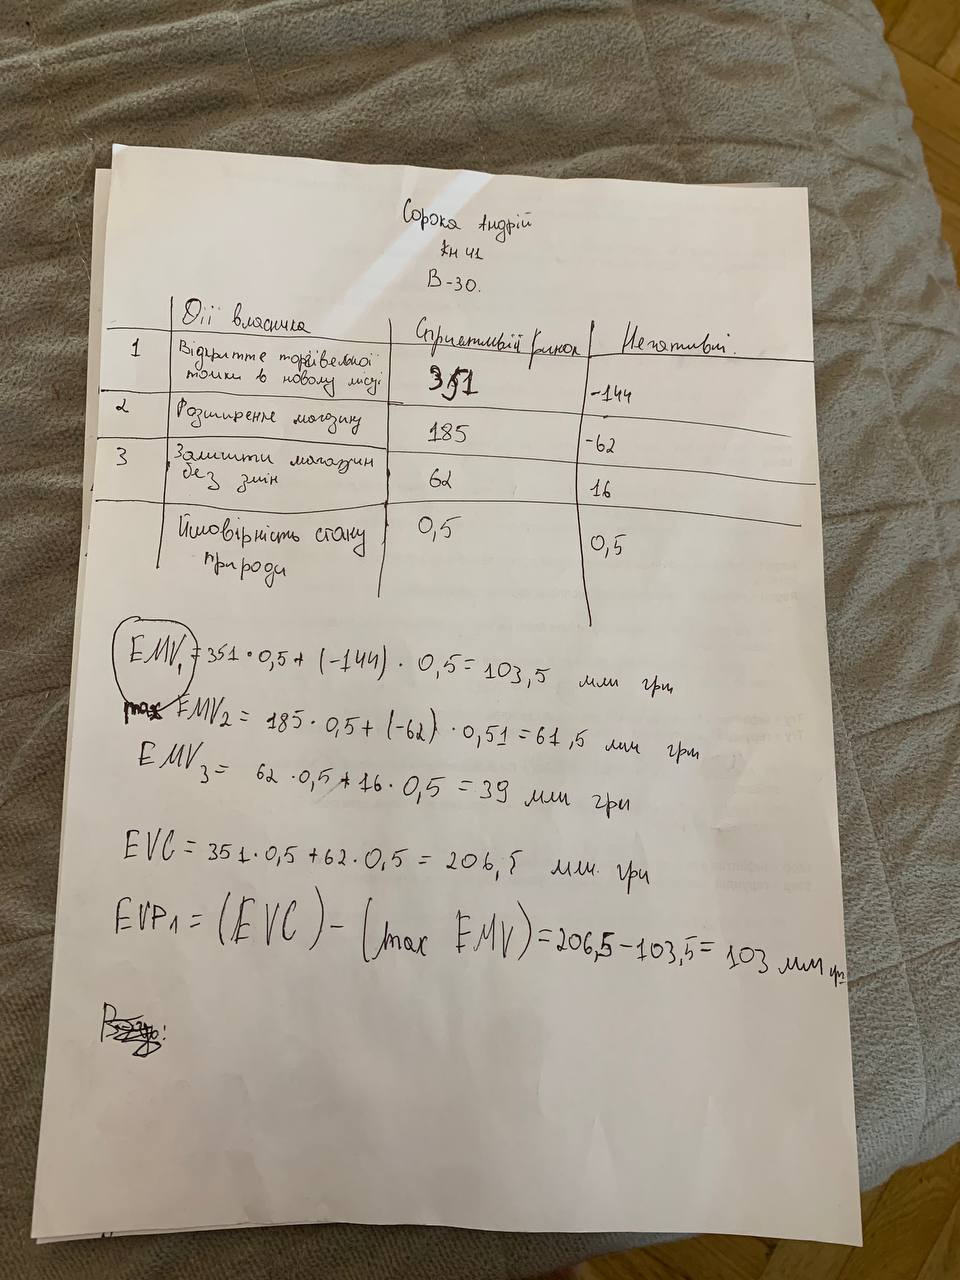 Сорока Андрій
КН 41
В-30.
Дії власника Сприятливий ринок Негативні.
1 Відкриття торгівельної точки в новому місці 351 -144
2 Розширення магазину 185 -62
3 Залишити магазин без змін 62 16
Ймовірність стану природи 0,5 0,5
EMV₁ = 351 · 0,5 + (-144) · 0,5 = 103,5 млн грн
max EMV₂ = 185 · 0,5 + (-62) · 0,51 = 61,5 млн грн
EMV₃ = 62 · 0,5 + 16 · 0,5 = 39 млн грн
EVC = 351 · 0,5 + 62 · 0,5 = 206,5 млн. грн
EVP₁ = (EVC) - (max EMV) = 206,5 - 103,5 = 103 млн грн